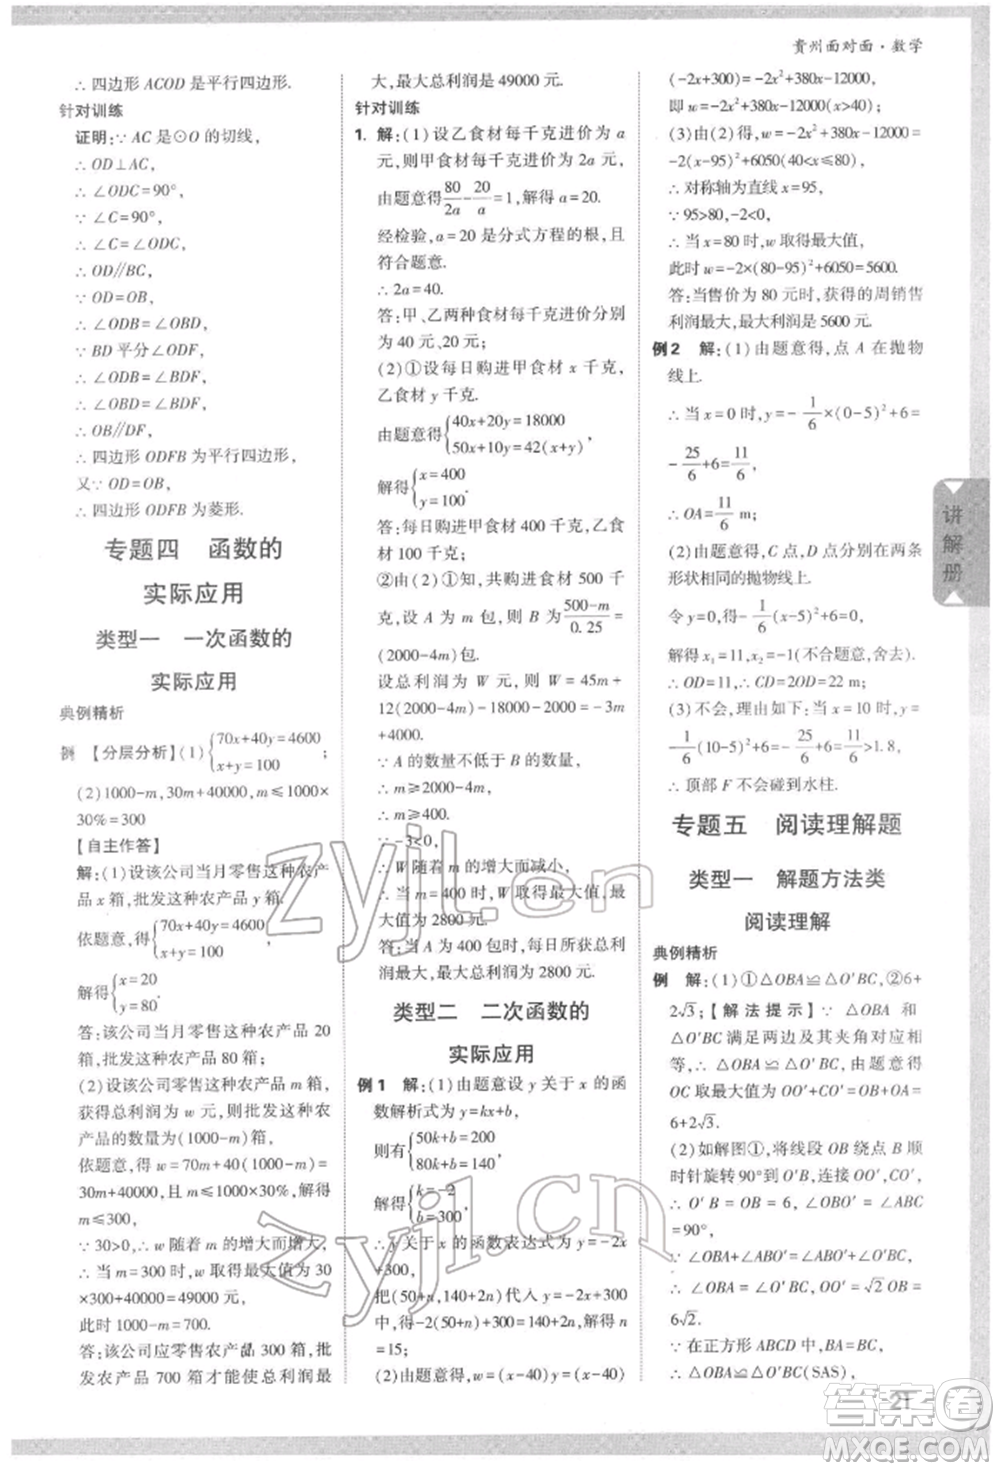 贵州面对面·数学
∴四边形ACOD是平行四边形.
针对训练
证明:∵AC是⊙O的切线,
∴OD⊥AC,
∴∠ODC=90°,
∵∠C=90°,
∴∠C=∠ODC,
∴OD∥BC,
∵OD=OB,
∴∠ODB=∠OBD,
∵BD平分∠ODF,
∴∠ODB=∠BDF,
∴∠OBD=∠BDF,
∴OB∥DF,
∴四边形ODFB为平行四边形,
又∵OD=OB,
∴四边形ODFB为菱形.
专题四 函数的
实际应用
类型一 一次函数的
实际应用
典例精析
例 【分层分析】(1){70x+40y=4600
x+y=100 ;
(2)1000-m,30m+40000,m≤1000×
30%=300
【自主作答】
解:(1)设该公司当月零售这种农产
品x箱,批发这种农产品y箱.
依题意,得{70x+40y=4600
x+y=100 ,
解得{x=20
y=80 .
答:该公司当月零售这种农产品20
箱,批发这种农产品80箱;
(2)设该公司零售这种农产品m箱,
获得总利润为w元,则批发这种农
产品的数量为(1000-m)箱,
依题意,得w=70m+40(1000-m)=
30m+40000,∵m≤1000×30%,解得
m≤300,
∵30>0,∴w随着m的增大而增大,
∴当m=300时,w取得最大值为30
×300+40000=49000元,
此时1000-m=700.
答:该公司应零售农产品300箱,批
发农产品700箱才能使总利润最
大,最大总利润是49000元.
针对训练
1. 解:(1)设乙食材每千克进价为a
元,则甲食材每千克进价为2a元,
由题意得80/2a-20/a=1,解得a=20.
经检验,a=20是分式方程的根,且
符合题意.
∴2a=40.
答:甲、乙两种食材每千克进价分别
为40元、20元;
(2)①设每日购进甲食材x千克,
乙食材y千克.
由题意得{40x+20y=18000
50x+10y=42(x+y) ,
解得{x=400
y=100 .
答:每日购进甲食材400千克,乙食
材100千克;
②由(2)①知,共购进食材500千
克,设A为m包,则B为500-m/0.25=
(2000-4m)包.
设总利润为W元,则W=45m+
12(2000-4m)-18000-2000=-3m
+4000.
∵A的数量不低于B的数量,
∴m≥2000-4m,
∴m≥400.
∵-3<0,
∴W随着m的增大而减小,
∴当m=400时,W取得最大值,最
大值为2800元.
答:当A为400包时,每日所获总利
润最大,最大总利润为2800元.
类型二 二次函数的
实际应用
例1 解:(1)由题意设y关于x的函
数解析式为y=kx+b,
则有{50k+b=200
80k+b=140 ,
解得{k=-2
b=300 .
∴y关于x的函数表达式为y=-2x
+300,
把(50+n,140+2n)代入y=-2x+300
中,得-2(50+n)+300=140+2n,解得n
=15;
(2)由题意得,w=(x-40)y=(x-40)
(-2x+300)=-2x²+380x-12000,
即w=-2x²+380x-12000(x>40);
(3)由(2)得,w=-2x²+380x-12000=
-2(x-95)²+6050(40<x≤80),
∴对称轴为直线x=95,
∵95>80,-2<0,
∴当x=80时,w取得最大值,
此时w=-2×(80-95)²+6050=5600.
答:当售价为80元时,获得的周销售
利润最大,最大利润是5600元.
例2 解:(1)由题意得,点A在抛物
线上.
∴当x=0时,y=-1/6×(0-5)²+6=
-25/6+6=11/6,
∴OA=11/6 m;
(2)由题意得,C点,D点分别在两条
形状相同的抛物线上.
令y=0,得-1/6(x-5)²+6=0,
解得x₁=11,x₂=-1(不合题意,舍去).
∴OD=11,∴CD=2OD=22 m;
(3)不会,理由如下:当x=10时,y=
-1/6(10-5)²+6=-25/6+6=11/6>1.8,
∴顶部F不会碰到水柱.
专题五 阅读理解题
类型一 解题方法类
阅读理解
典例精析
例 解:(1)①△OBA≌△O'BC,②6+
2√3;【解法提示】∵△OBA和
△O'BC满足两边及其夹角对应相
等,∴△OBA≌△O'BC,由题意得
OC取最大值为OO'+O'C=OO'+OA=
6+2√3.
(2)如解图①,将线段OB绕点B顺
时针旋转90°到O'B,连接OO',CO',
∴O'B=OB=6,∠OBO'=∠ABC
=90°,
∴∠OBA+∠ABO'=∠O'BC+∠ABO',
∴∠OBA=∠O'BC,OO'=√2OB=
6√2.
∵在正方形ABCD中,BA=BC,
∴△OBA≌△O'BC(SAS),
讲解册
21
zyjl.cn
zyjl.cn
答案卷
MXQE.COM